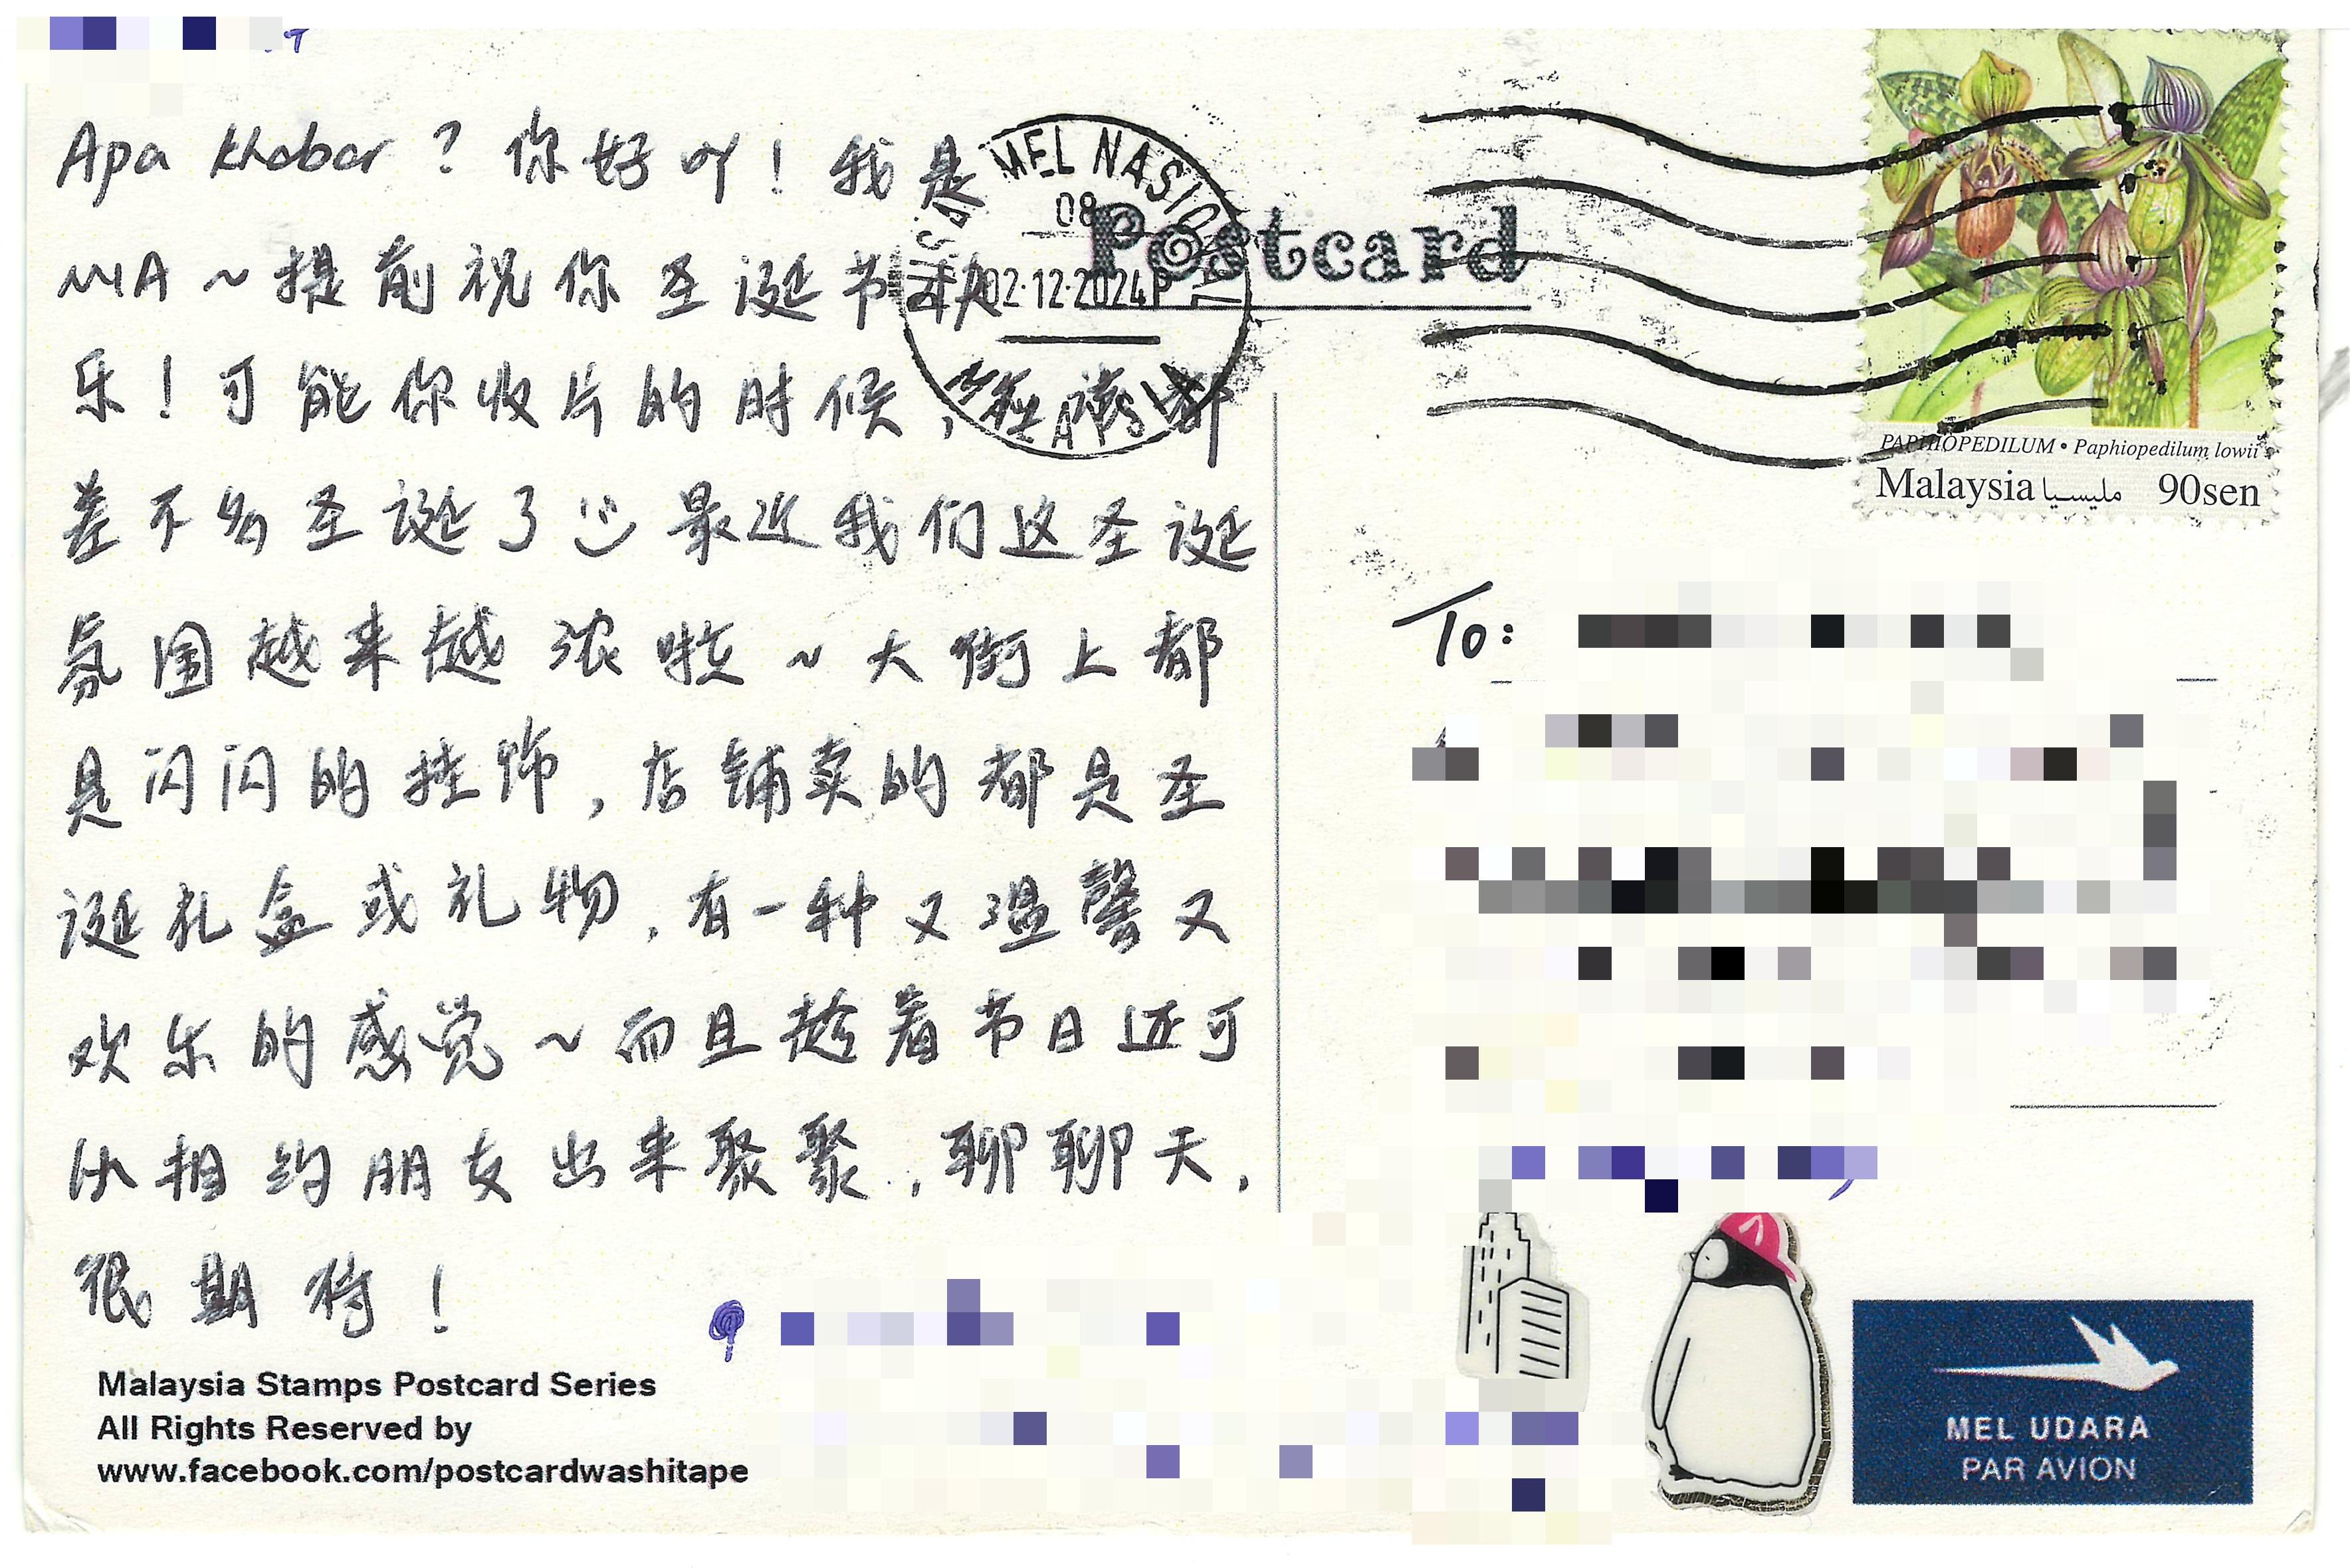 Apa khabar ? 你好吖！我是
MIA ~ 提前祝你圣诞节快
乐！可能你收片的时候，在诺都
差不多圣诞了 最近我们这圣诞
氛围越来越浓啦 ~ 大街上都
是闪闪的挂饰，店铺卖的都是圣
诞礼盒或礼物，有一种又温馨又
欢乐的感觉 ~ 而且趁着节日还可
以相约朋友出来聚聚，聊聊天，
很期待！
Malaysia Stamps Postcard Series
All Rights Reserved by
www.facebook.com/postcardwashitape
MEL NASIONAL
08
02·12·2024P
MALAYSIA
Postcard
PAPHIOPEDILUM • Paphiopedilum lowii
Malaysia مليسيا 90sen
To:
MEL UDARA
PAR AVION